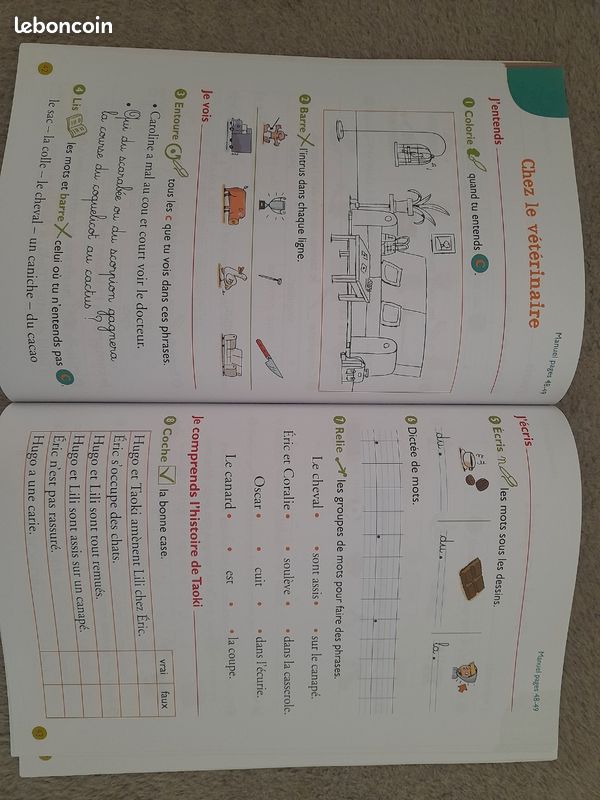 leboncoin
Manuel pages 48-49
Chez le vétérinaire
J'entends
1 Colorie quand tu entends c.
2 Barre l'intrus dans chaque ligne.
Je vois
3 Entoure tous les c que tu vois dans ces phrases.
• Caroline a mal au cou et court voir le docteur.
• Qui du scarabée ou du scorpion gagnera
la course du coquelicot au cactus ?
4 Lis les mots et barre celui où tu n'entends pas c.
le sac – la colle – le cheval – un caniche – du cacao
Manuel pages 48-49
J'écris
5 Écris les mots sous les dessins.
du
du
la
6 Dictée de mots.
7 Relie les groupes de mots pour faire des phrases.
Le cheval • • sont assis • • sur le canapé.
Éric et Coralie • • soulève • • dans la casserole.
Oscar • • cuit • • dans l'écurie.
Le canard • • est • • la coupe.
Je comprends l'histoire de Taoki
8 Coche la bonne case.
vrai faux
Hugo et Taoki amènent Lili chez Éric.
Éric s'occupe des chats.
Hugo et Lili sont tout remués.
Hugo et Lili sont assis sur un canapé.
Éric n'est pas rassuré.
Hugo a une carie.